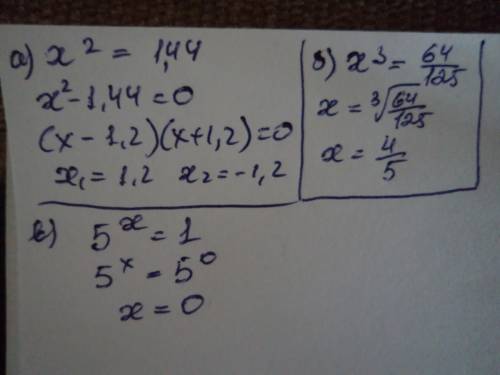 а) x² = 1,44
x² - 1,44 = 0
(x - 1,2)(x + 1,2) = 0
x₁ = 1,2 x₂ = -1,2
б) x³ = 64/125
x = ∛(64/125)
x = 4/5
в) 5ˣ = 1
5ˣ = 5⁰
x = 0